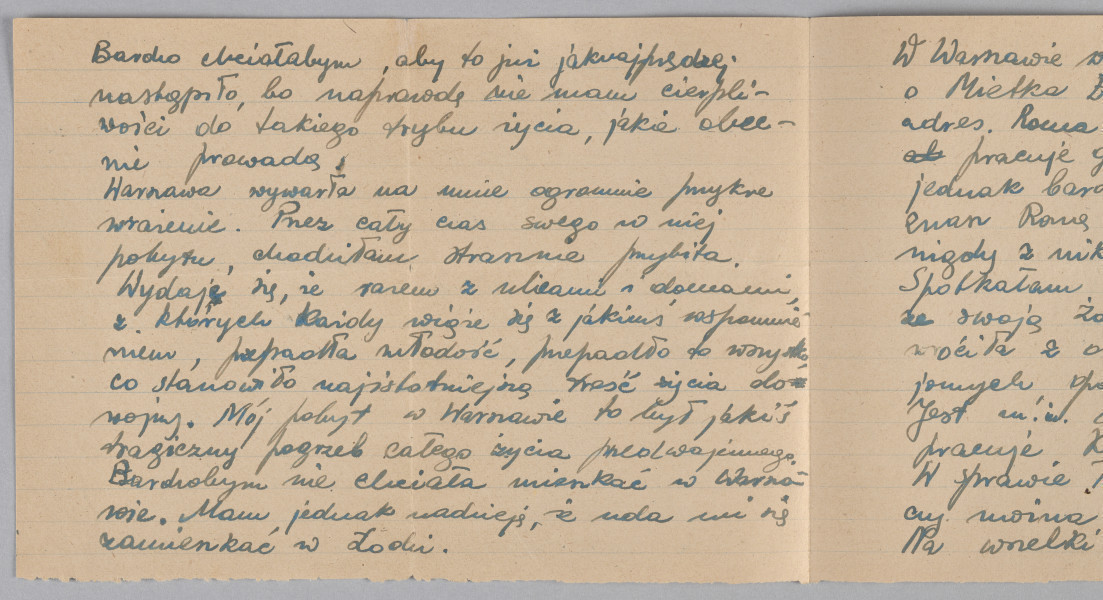 Bardzo chciałabym, aby to już jaknajprędzej
nastąpiło, bo naprawdę nie mam cierpli-
wości do takiego trybu życia, jakie obec-
nie prowadzę.
Warszawa wywarła na mnie ogromnie przykre
wrażenie. Przez cały czas swego w niej
pobytu, chodziłam strasznie przybita.
Wydaję się, że razem z ulicami i domami,
z których każdy wiąże się z jakimś wspomnie-
niem, przepadła młodość, przepadło to wszystko,
co stanowiło najistotniejszą treść życia do
wojny. Mój pobyt w Warszawie to był jakiś
tragiczny pogrzeb całego życia przedwojennego.
Bardzobym nie chciała mieszkać w Warsza-
wie. Mam jednak nadzieję, że uda mi się
zamieszkać w Łodzi.
W Warszawie
o Mietka
adres. Roma
pracuje
jednak
znasz Romę
nigdy z nik
Spotkałam
ze swoją
wróciła z
jomych
Jest m. in.
pracuje
W sprawie
czy można
Na wszelki